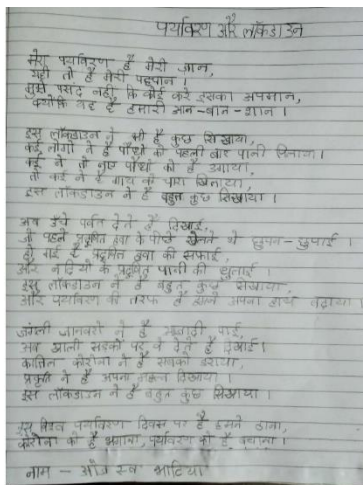 पर्यावरण और लॉकडाउन
मेरा पर्यावरण है मेरी जान,
यही तो है मेरी पहचान।
मुझे पसंद नहीं कि कोई करे इसका अपमान,
क्योंकि यह है हमारी आन-बान-शान।
इस लॉकडाउन ने भी है कुछ सिखाया,
कई लोगों ने है पौधों को पहली बार पानी पिलाया।
कई ने तो नए पौधों को है उगाया,
तो कई ने है गाय को चारा खिलाया,
इस लॉकडाउन ने है बहुत कुछ सिखाया।
अब ऊँचे पर्वत देते हैं दिखाई,
जो पहले प्रदूषित हवा के पीछे खेलते थे छुपन-छुपाई।
हो गई है प्रदूषित हवा की सफाई,
और नदियों के प्रदूषित पानी की धुलाई।
इस लॉकडाउन ने है बहुत कुछ सिखाया,
और पर्यावरण की तरफ है हमने अपना हाथ बढ़ाया
जंगली जानवरों ने है आज़ादी पाई,
अब खाली सड़कों पर वे देते हैं दिखाई।
कातिल कोरोना ने है सबको डराया,
प्रकृति ने है अपना दिखाया।
इस लॉकडाउन ने है बहुत कुछ सिखाया।
इस विश्व पर्यावरण दिवस पर है हमने ठाना,
कोरोना को है भगाना, पर्यावरण को है बचाना।
नाम - भाटिया